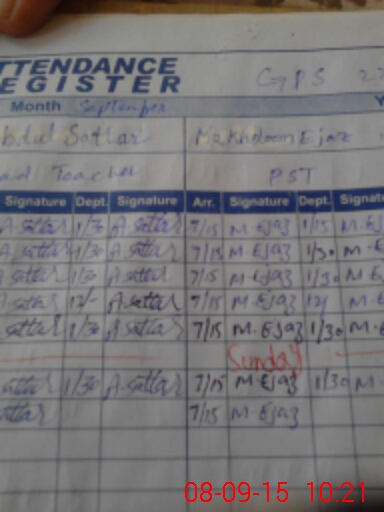 TTENDANCE
EGISTER GPS
Month September
bdul Sattar Makhdoom Ejaz
ad Teacher PST
Signature Dept. Signature Arr. Signature Dept. Signat
A.sattar 1/30 A.sattar 7/15 M.Ejaz 1/15 M.Ej
A.sattar 1/30 A.sattar 7/15 M.Ejaz 1/30 M.E
A.sattar 1/30 A.sattar 7/15 M.Ejaz 1/30 M.E
A.sattar 12/- A.sattar 7/15 M.Ejaz 12/ M.E
sattar 1/30 A.sattar 7/15 M.Ejaz 1/30 M.E
Sunday
sattar 1/30 A.sattar 7/15 M.Ejaz 1/30 M.
sattar 7/15 M.Ejaz
08-09-15 10:21